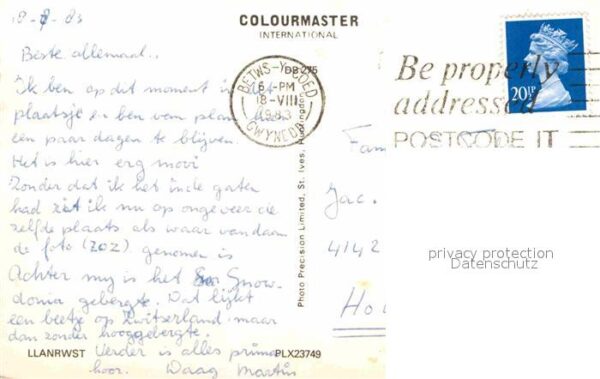 18-8-83
COLOURMASTER
INTERNATIONAL
Beste allemaal..
Ik ben op dit moment in dit
plaatsje en ben van plan
een paar dagen te blijven.
Het is hier erg mooi
Zonder dat ik het in de gaten
had zit ik nu op ongeveer die
zelfde plaats als waar vandaan
de foto (ZOZ) genomen is
Achter mij is het Snow-
donia gebergte. Dat lijkt
een beetje op Zwitserland maar
dan zonder hooggebergte.
Verder is alles prima
hoor. Daag Martin
LLANRWST
PLX23749
DB 275
BETWS-Y-COED
6 - PM
18-VIII
1983
GWYNEDD
Be properly
addressed
POSTCODE IT
20½P
Photo Precision Limited, St. Ives, Huntingdon
Fam
Jac.
4142
Ho
privacy protection
Datenschutz